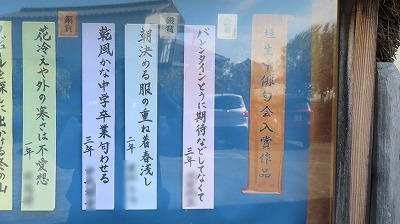 埴生下俳句会入賞作品
金賞
バレンタインとうに期待などしてなくて
三年
銀賞
朝決める服の重ね着春浅し
二年
乾風かな中学卒業匂わせる
三年
銅賞
花冷えや外の寒さは不愛想
一年